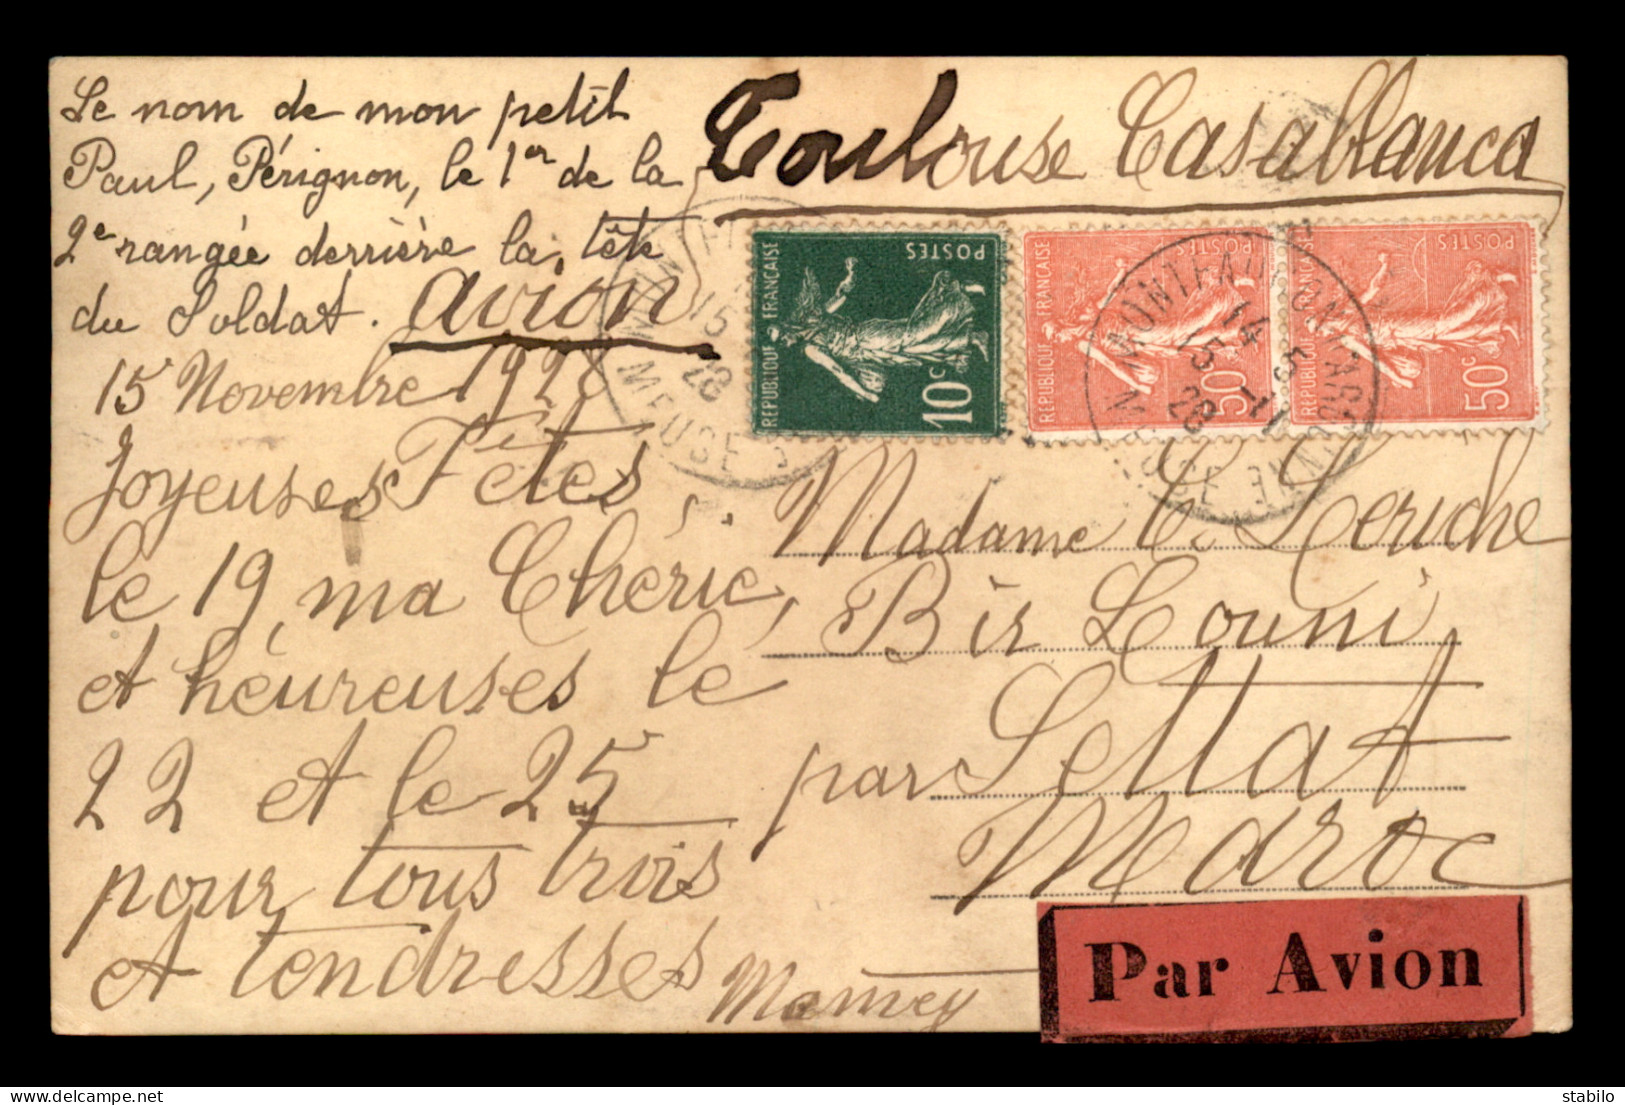 Le nom de mon petit
Paul, Pérignon, le 1er de la
2e rangée derrière la tête
du Soldat.
avion
15 Novembre 1928
Joyeuses Fêtes
le 19, ma Chérie,
et heureuses le
22 et le 25
pour tous trois
et tendresses
Toulouse Casablanca
POSTES
RÉPUBLIQUE FRANÇAISE
10c
POSTES
RÉPUBLIQUE FRANÇAISE
50c
POSTES
RÉPUBLIQUE FRANÇAISE
50c
15
28
MEUSE
MONTFAUCON D'ARGONNE
14 5
15 11
28
MEUSE
Madame C. Leriche
Bir Louni
par Settat
Maroc
Par Avion
stabilo
delcampe.net